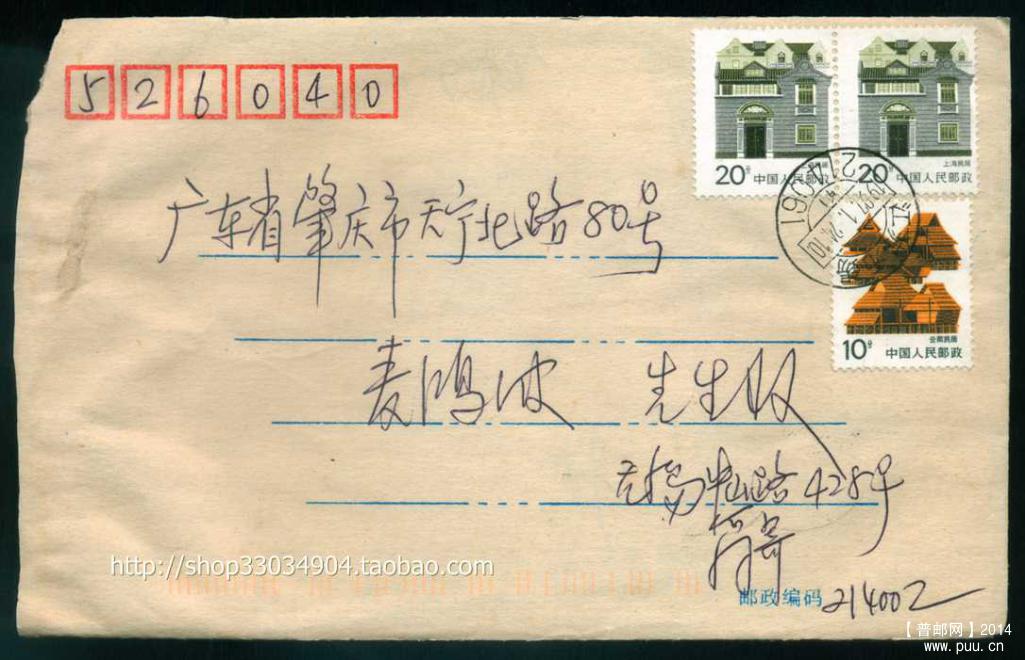 526040
20分 中国人民邮政
上海民居
20分 中国人民邮政
广东省肇庆市天宁北路80号
云南民居
10分 中国人民邮政
麦鸿波 先生收
无锡 中山路428号
寄
http://shop33034904.taobao.com
邮政编码 214002
【普邮网】2014
www.puu.cn